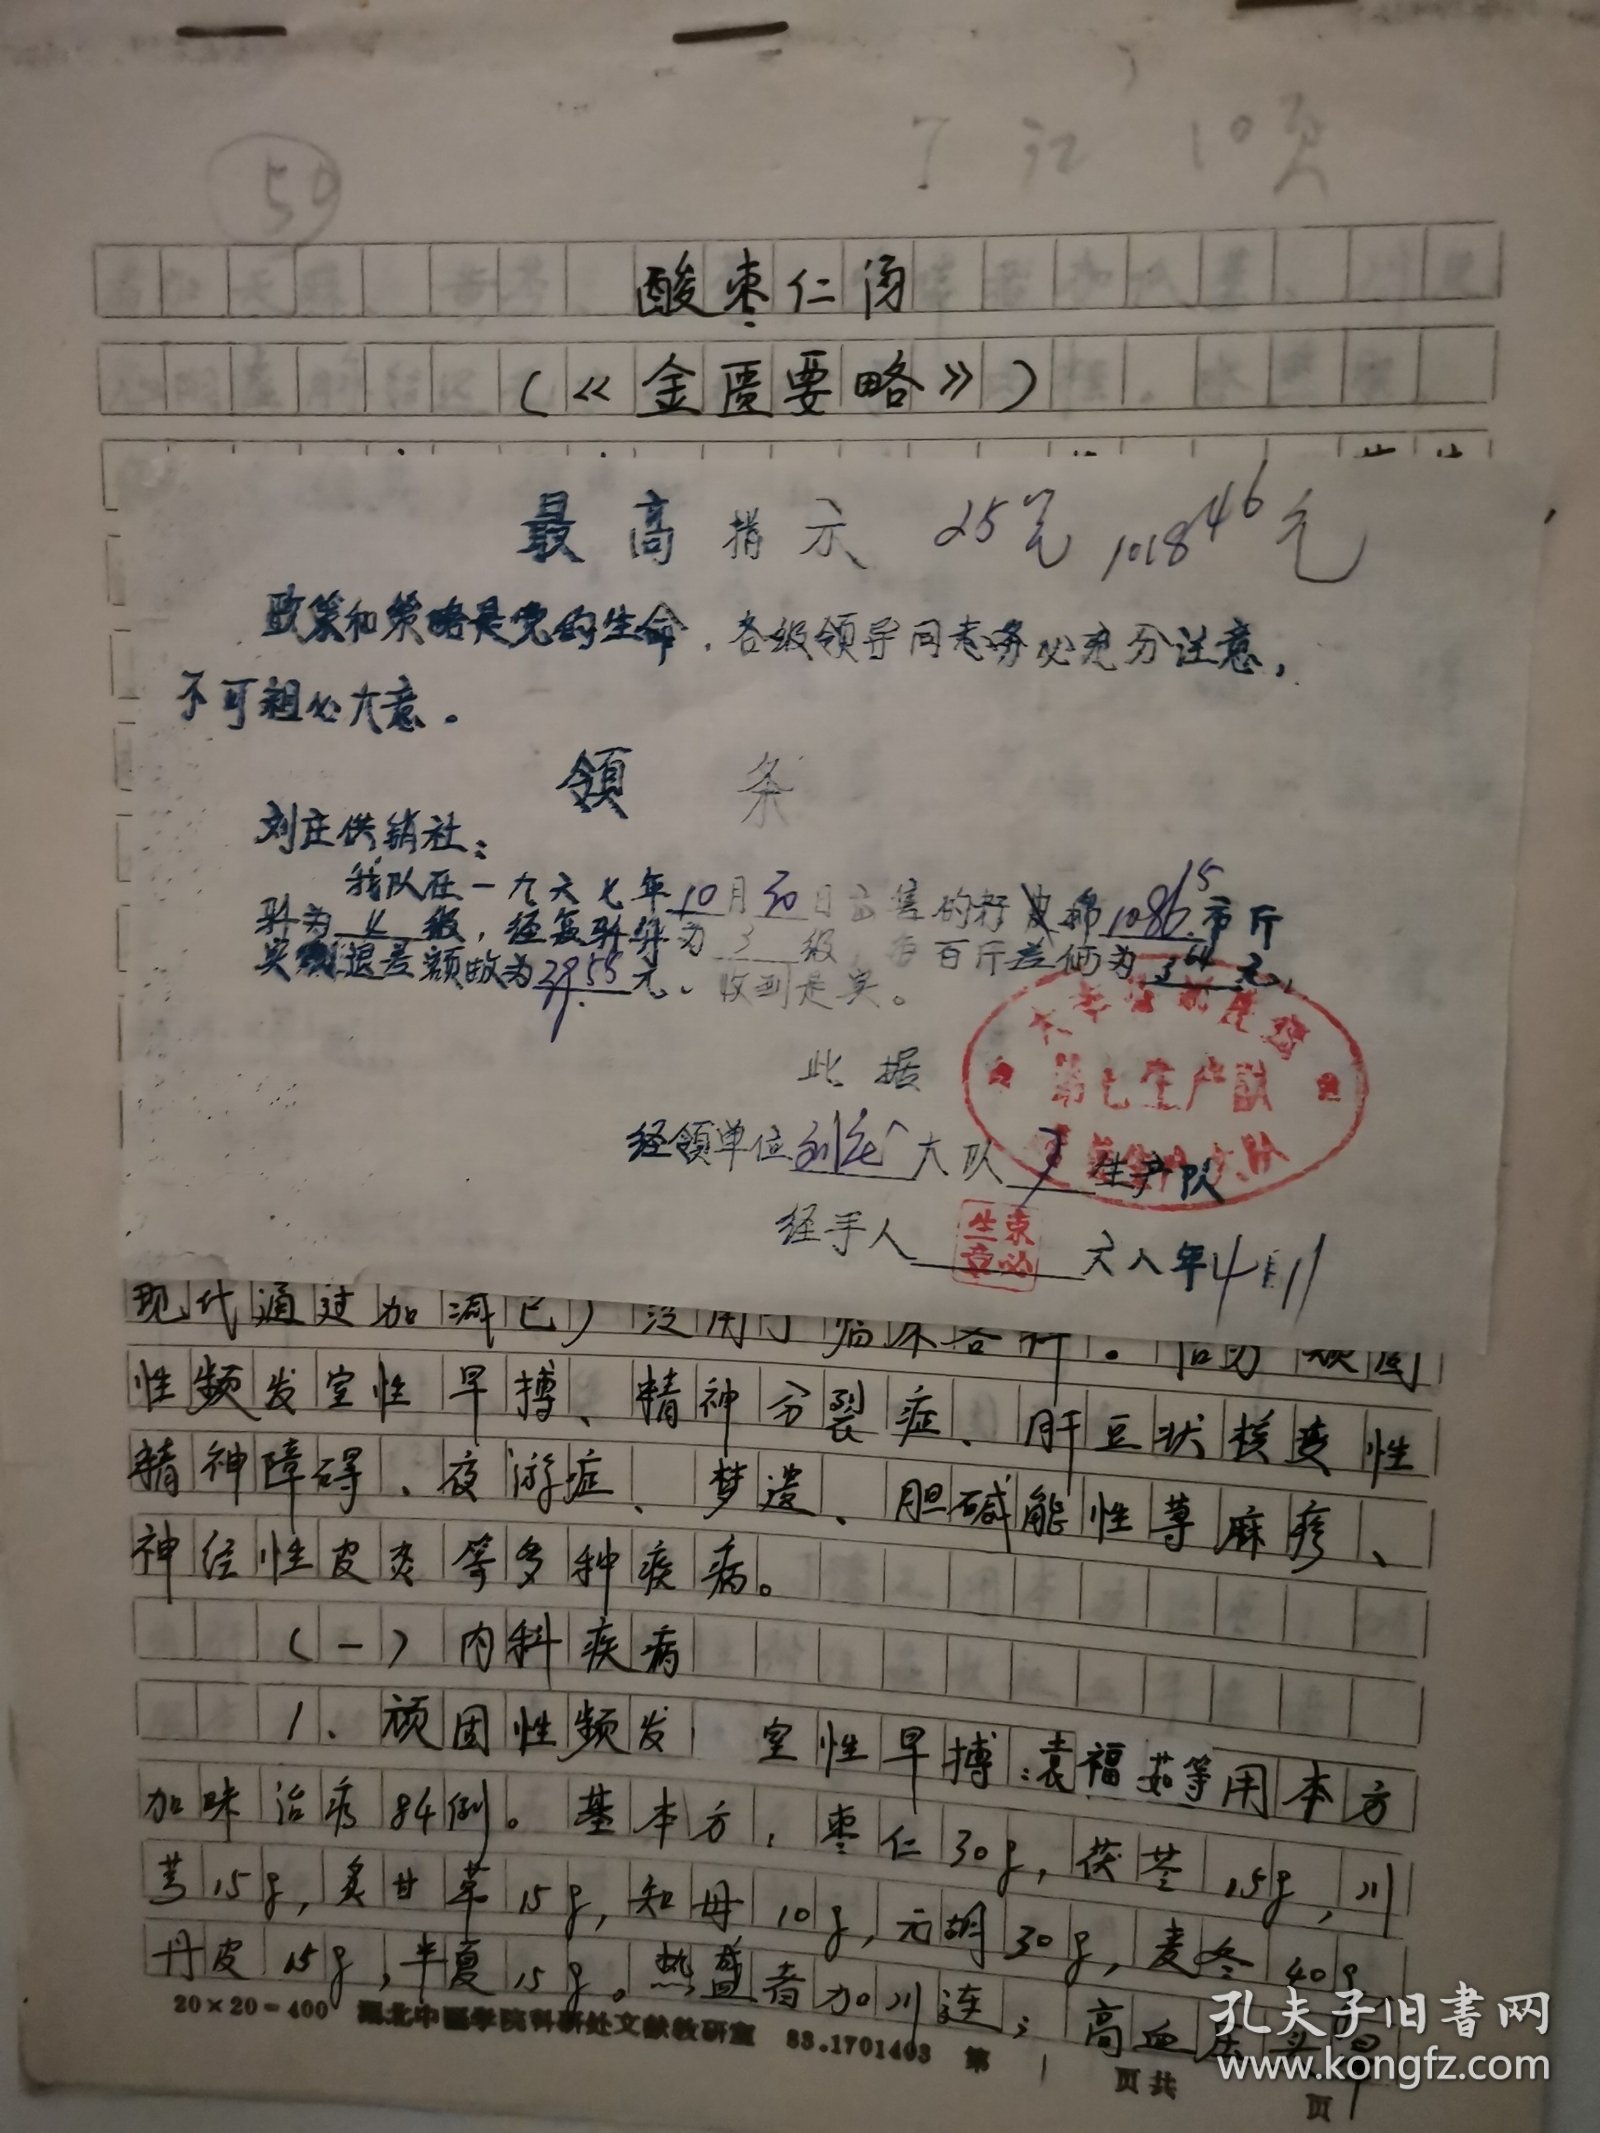 50
10页
酸枣仁汤
(《金匮要略》)
最高指示 25元 1018.46元
政策和策略是党的生命，各级领导同志务必充分注意，
不可粗心大意。
领条
刘庄供销社：
我队在一九六七年10月30日出售的籽皮棉1086.15市斤
验为4级，经复验算为3级，每百斤差价为3.64元，
实退差额款为39.55元、收到是实。
此据
第七生产队
经领单位刘庄大队7生产队
经手人 六八年4月11
现代通过加减已广泛用于临床各科。
性频发室性早搏、精神分裂症、肝豆状核变性
精神障碍、夜游症、梦遗、胆碱能性荨麻疹、
神经性皮炎等多种疾病。
(一)内科疾病
1、顽固性频发室性早搏:袁福茹等用本方
加味治疗84例。基本方：枣仁30g，茯苓15g，川
芎15g，炙甘草15g，知母10g，元胡30g，麦冬40g
丹皮15g，半夏15g。热盛者加川连；高血压
20×20=400 湖北中医学院科研处文献教研室 83.1701403 第1页共 页
孔夫子旧书网
www.kongfz.com